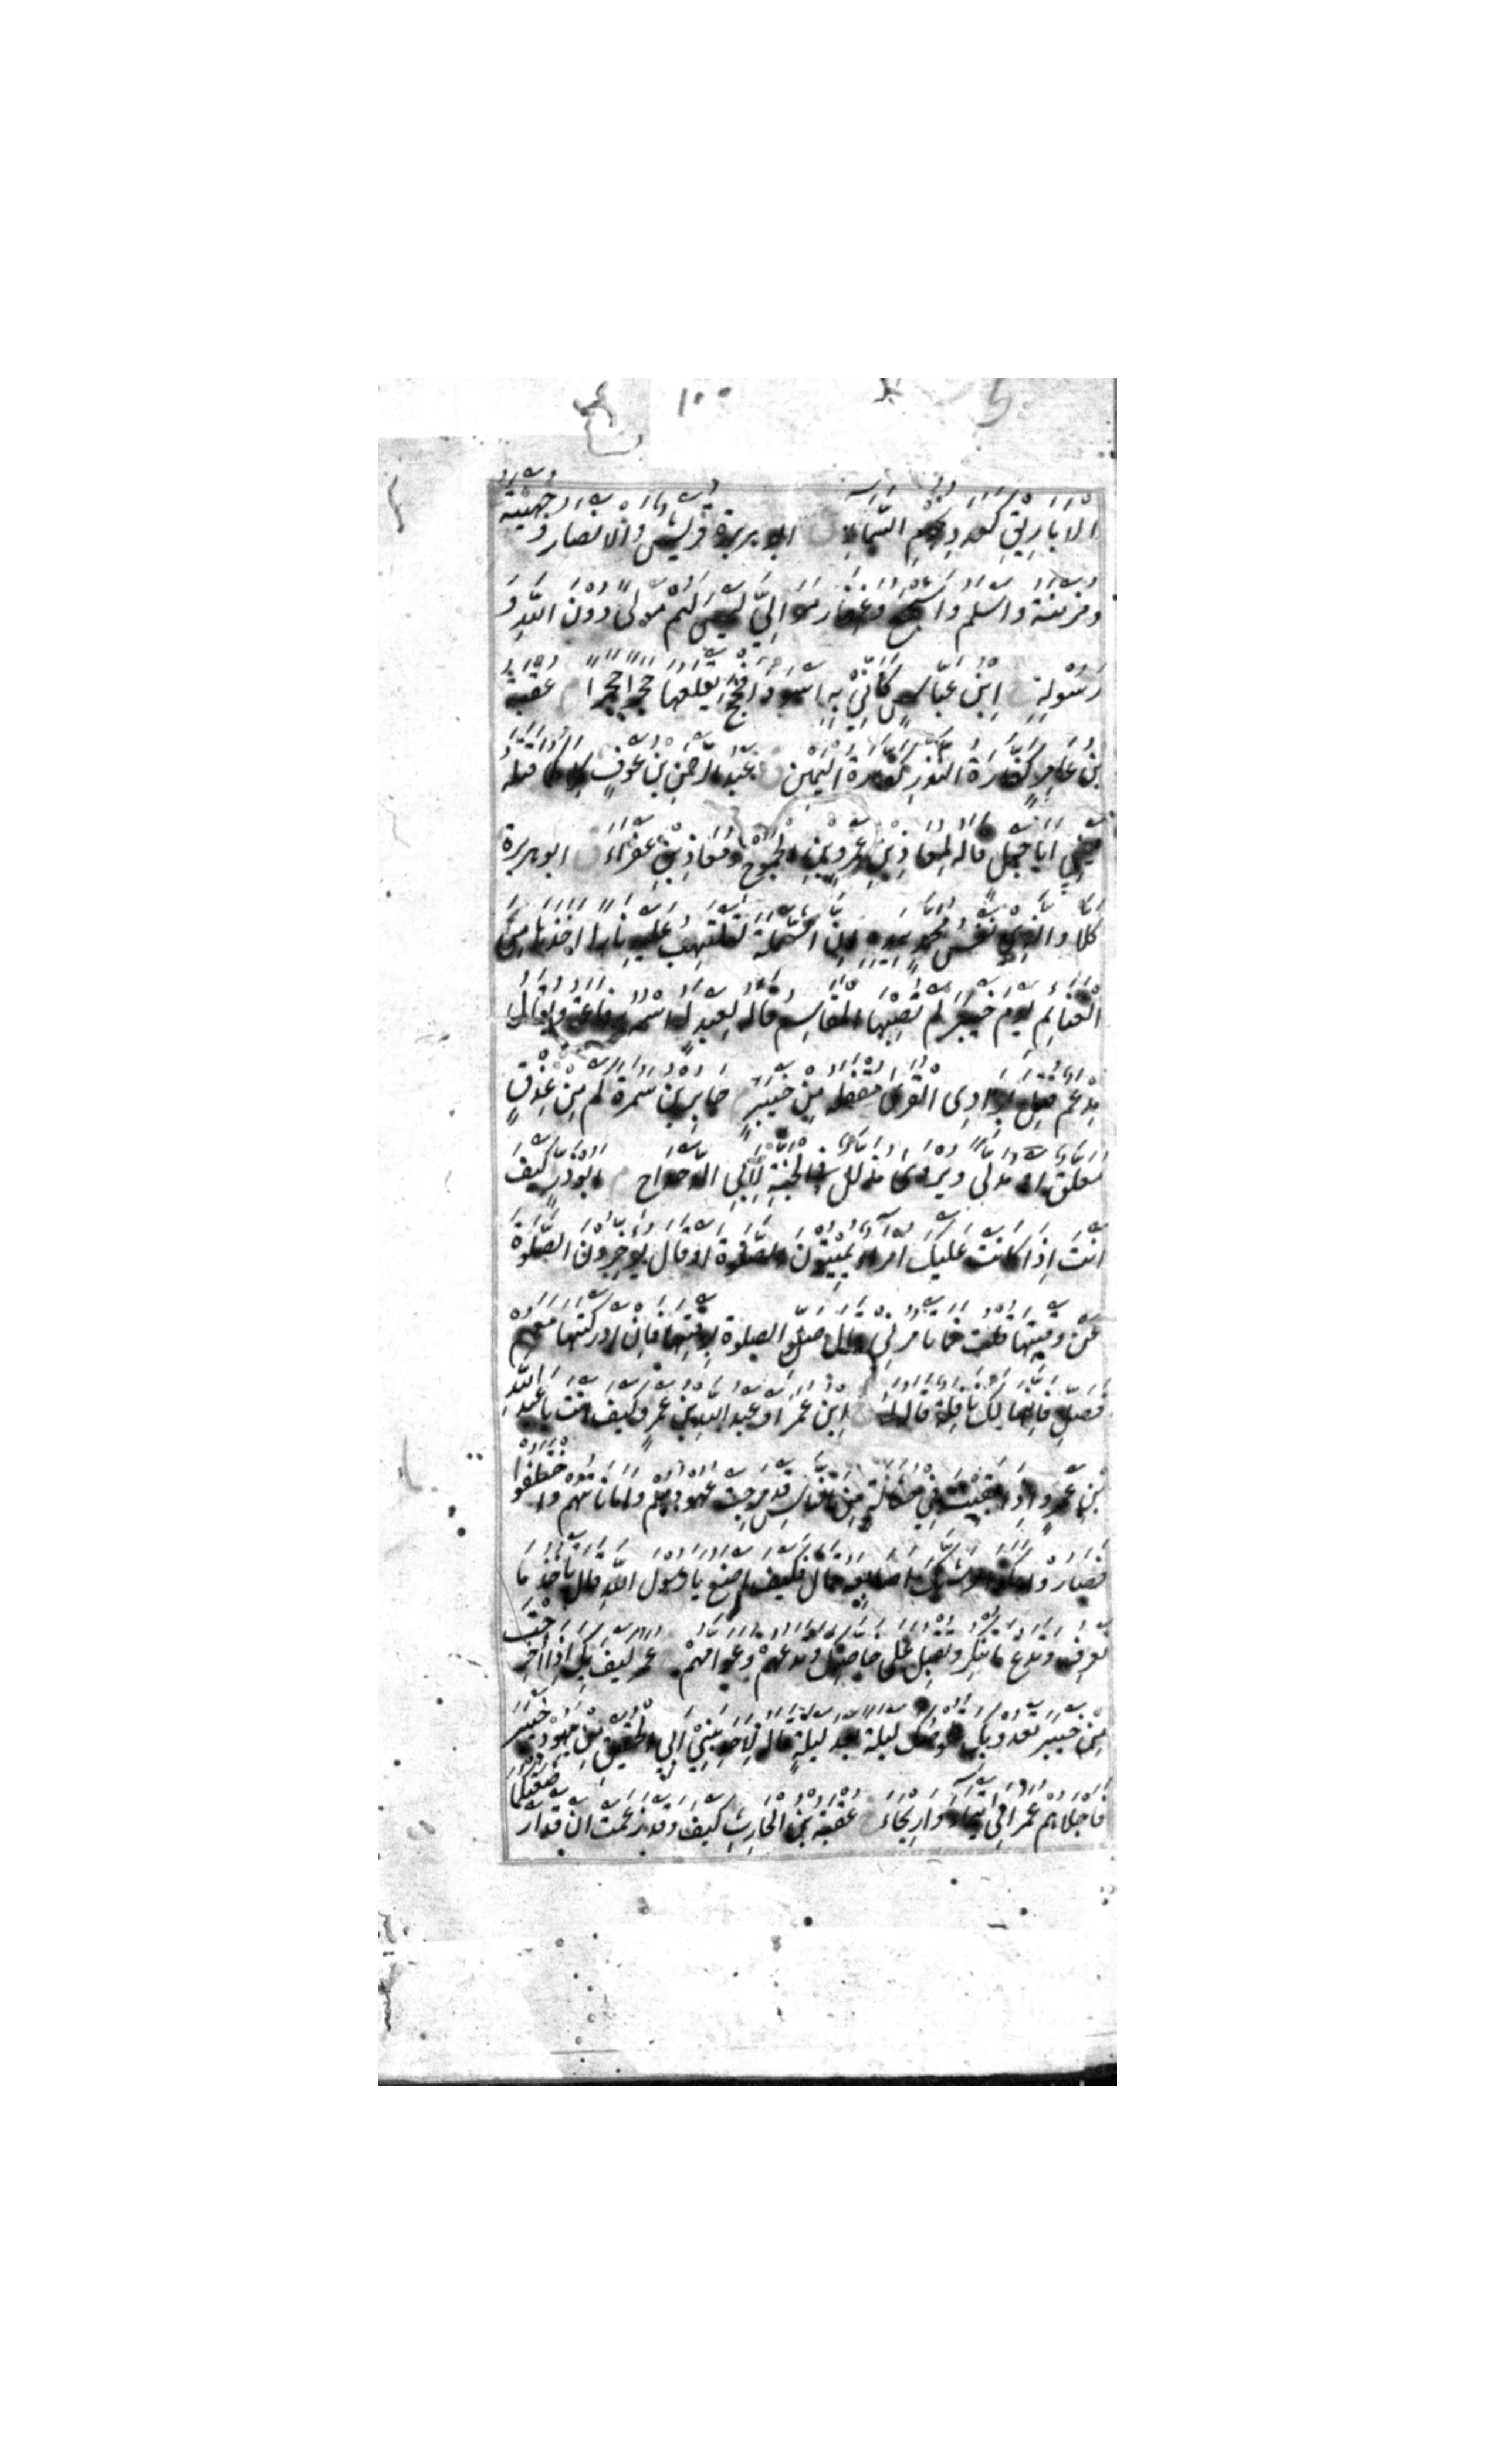 ١٠٠
الْاَبَارِيْقِ كَعَدَدِ نُجُوْمِ السَّمَاءِ ق ابو هريرة قُرَيْشٌ وَالْاَنْصَارُ وَجُهَيْنَةُ
وَمُزَيْنَةُ وَاَسْلَمُ وَاَشْجَعُ وَغِفَارُ مَوَالِيَّ لَيْسَ لَهُمْ مَوْلًى دُوْنَ اللّٰهِ وَ
رَسُوْلِهِ خ اِبْنُ عَبَّاسٍ كَاَنِّيْ بِهِ اَسْوَدَ اَفْحَجَ يَقْلَعُهَا حَجَرًا حَجَرًا م عُقْبَةُ
بْنُ عَامِرٍ كَفَّارَةُ النَّذْرِ كَفَّارَةُ الْيَمِيْنِ ق عَبْدُ الرَّحْمٰنِ بْنُ عَوْفٍ كِلَاكُمَا قَتَلَهُ
يَعْنِي اَبَا جَهْلٍ قَالَهُ لِمُعَاذِ بْنِ عَمْرِو بْنِ الْجَمُوْحِ وَمُعَاذِ بْنِ عَفْرَاءَ ق ابو هريرة
كَلَّا وَالَّذِيْ نَفْسُ مُحَمَّدٍ بِيَدِهِ اِنَّ الشَّمْلَةَ لَتَلْتَهِبُ عَلَيْهِ نَارًا اَخَذَهَا مِنَ
الْغَنَائِمِ يَوْمَ خَيْبَرَ لَمْ تُصِبْهَا الْمَقَاسِمُ قَالَهُ لِعَبْدٍ لَهُ اسْمُهُ رِفَاعَةُ وَيُقَالُ
مِدْعَمٌ قُتِلَ بِوَادِى الْقُرَى مَقْفَلَهُ مِنْ خَيْبَرَ م جَابِرُ بْنُ سَمُرَةَ كَمْ مِنْ عِذْقٍ
مُعَلَّقٍ اَوْ مُدَلًّى وَيُرْوَى مُذَلَّلٍ فِي الْجَنَّةِ لِاَبِي الدَّحْدَاحِ م اَبُوْ ذَرٍّ كَيْفَ
اَنْتَ اِذَا كَانَتْ عَلَيْكَ اُمَرَاءُ يُمِيْتُوْنَ الصَّلٰوةَ اَوْ قَالَ يُؤَخِّرُوْنَ الصَّلٰوةَ
عَنْ وَقْتِهَا قُلْتُ فَمَا تَأْمُرُنِيْ قَالَ صَلِّ الصَّلٰوةَ لِوَقْتِهَا فَاِنْ اَدْرَكْتَهَا مَعَهُمْ
فَصَلِّ فَاِنَّهَا لَكَ نَافِلَةٌ قَالَهُ لَهُ خ اِبْنُ عُمَرَ اَوْ عَبْدُ اللّٰهِ بْنُ عَمْرٍو كَيْفَ اَنْتَ يَا عَبْدَ اللّٰهِ
بْنَ عَمْرٍو اِذَا بَقِيْتَ فِيْ حُثَالَةٍ مِنَ النَّاسِ قَدْ مَرِجَتْ عُهُوْدُهُمْ وَاَمَانَاتُهُمْ وَاخْتَلَفُوْا
فَصَارُوْا هٰكَذَا وَشَبَّكَ اَصَابِعَهُ قَالَ فَكَيْفَ اَصْنَعُ يَا رَسُوْلَ اللّٰهِ قَالَ تَأْخُذُ مَا
تَعْرِفُ وَتَدَعُ مَا تُنْكِرُ وَتُقْبِلُ عَلٰى خَاصَّتِكَ وَتَدَعُهُمْ وَعَوَامَّهُمْ خ عُمَرُ كَيْفَ بِكَ اِذَا اُخْرِجْتَ
مِنْ خَيْبَرَ تَعْدُوْ بِكَ قَلُوْصُكَ لَيْلَةً بَعْدَ لَيْلَةٍ قَالَهُ لِاَحَدِ بَنِيْ اَبِي الْحُقَيْقِ مِنْ يَهُوْدِ خَيْبَرَ
فَاَجْلَاهُمْ عُمَرُ اِلٰى تَيْمَاءَ وَاَرِيْحَاءَ خ عُقْبَةُ بْنُ الْحَارِثِ كَيْفَ وَقَدْ زَعَمَتْ اَنْ قَدْ اَرْضَعَتْكُمَا